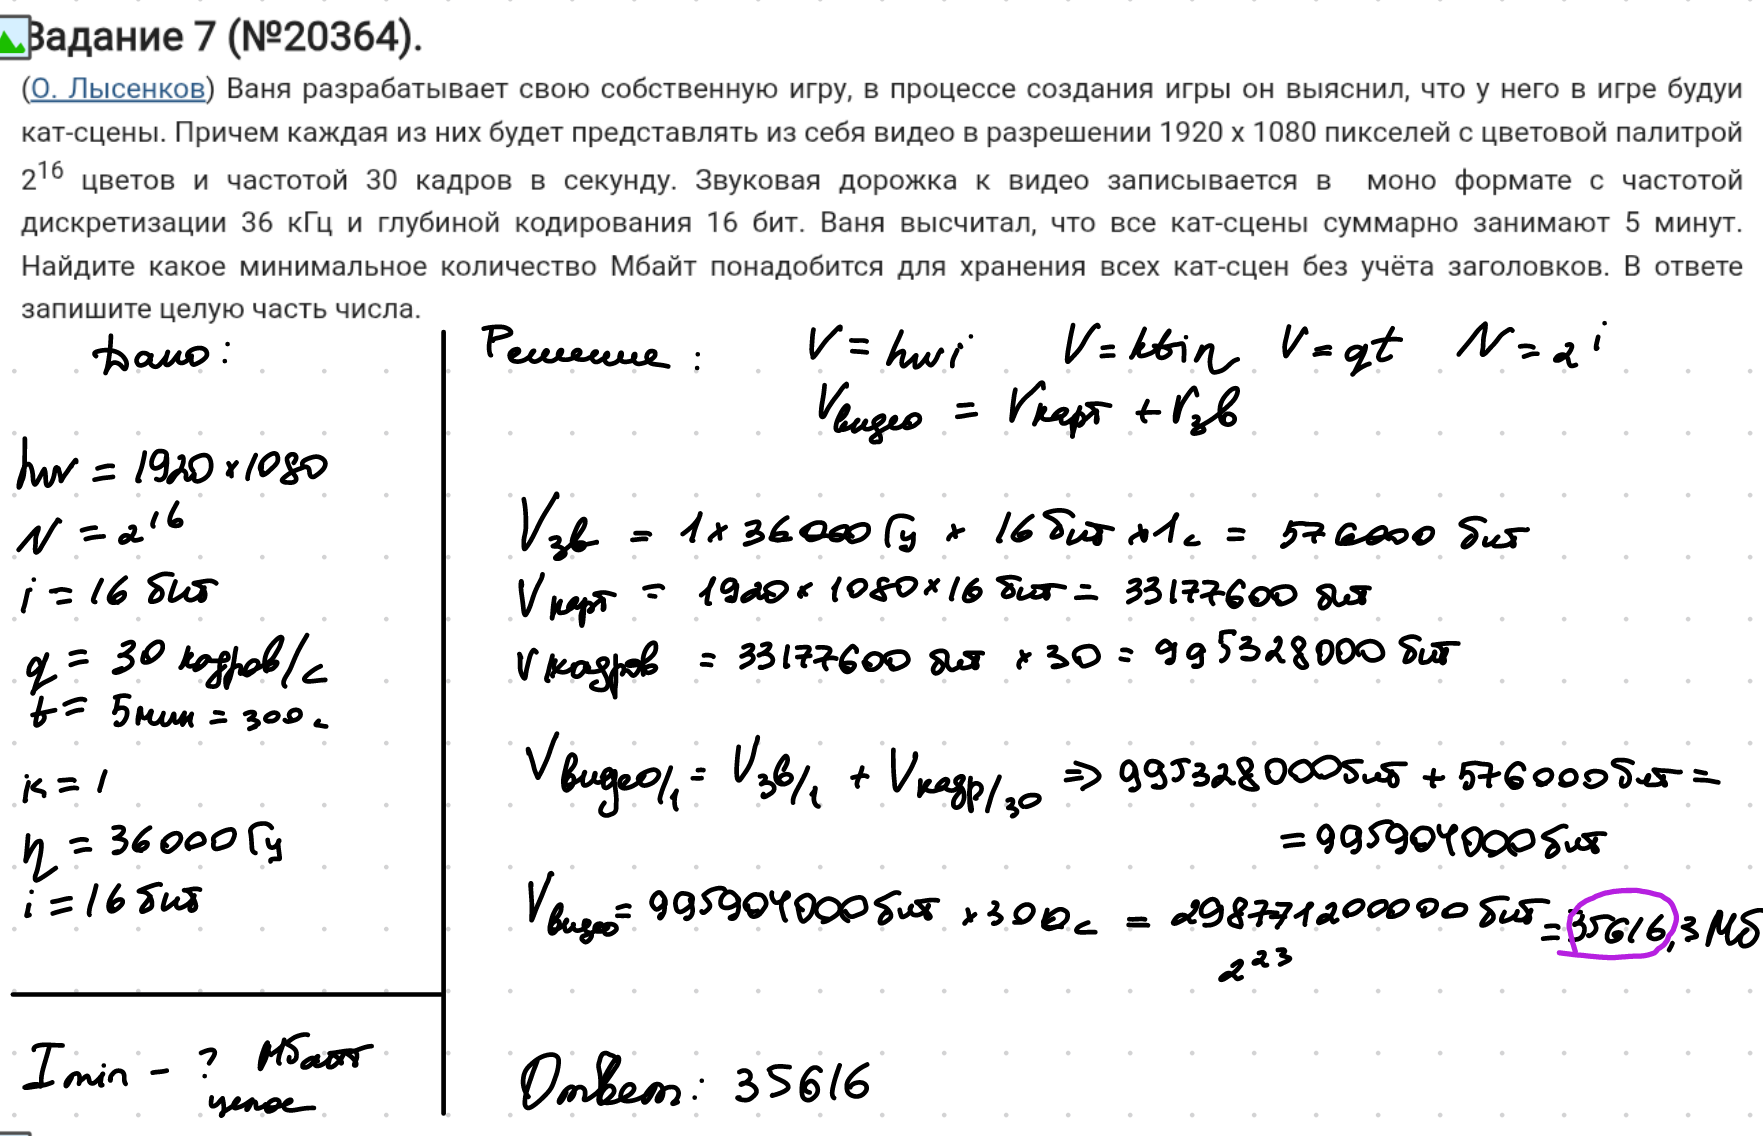 Задание 7 (№20364).
(О. Лысенков) Ваня разрабатывает свою собственную игру, в процессе создания игры он выяснил, что у него в игре будуи
кат-сцены. Причем каждая из них будет представлять из себя видео в разрешении 1920 x 1080 пикселей с цветовой палитрой
2^16 цветов и частотой 30 кадров в секунду. Звуковая дорожка к видео записывается в моно формате с частотой
дискретизации 36 кГц и глубиной кодирования 16 бит. Ваня высчитал, что все кат-сцены суммарно занимают 5 минут.
Найдите какое минимальное количество Мбайт понадобится для хранения всех кат-сцен без учёта заголовков. В ответе
запишите целую часть числа.
Дано:
hw = 1920 × 1080
N = 2^16
i = 16 бит
q = 30 кадров/с
t = 5 мин = 300 с
k = 1
η = 36000 Гц
i = 16 бит
I min - ? Мбайт
целое
Решение: V = hwi V = ktiη V = qt N = 2^i
Vвидео = Vкарт + Vзв
Vзв = 1 × 36000 Гц × 16 бит × 1 с = 576000 бит
Vкарт = 1920 × 1080 × 16 бит = 33177600 бит
Vкадров = 33177600 бит × 30 = 995328000 бит
Vвидео/1 = Vзв/1 + Vкадр/30 => 995328000 бит + 576000 бит =
= 995904000 бит
Vвидео = 995904000 бит × 300 с = 298771200000 бит = 35616,3 Мб
2^23
Ответ: 35616